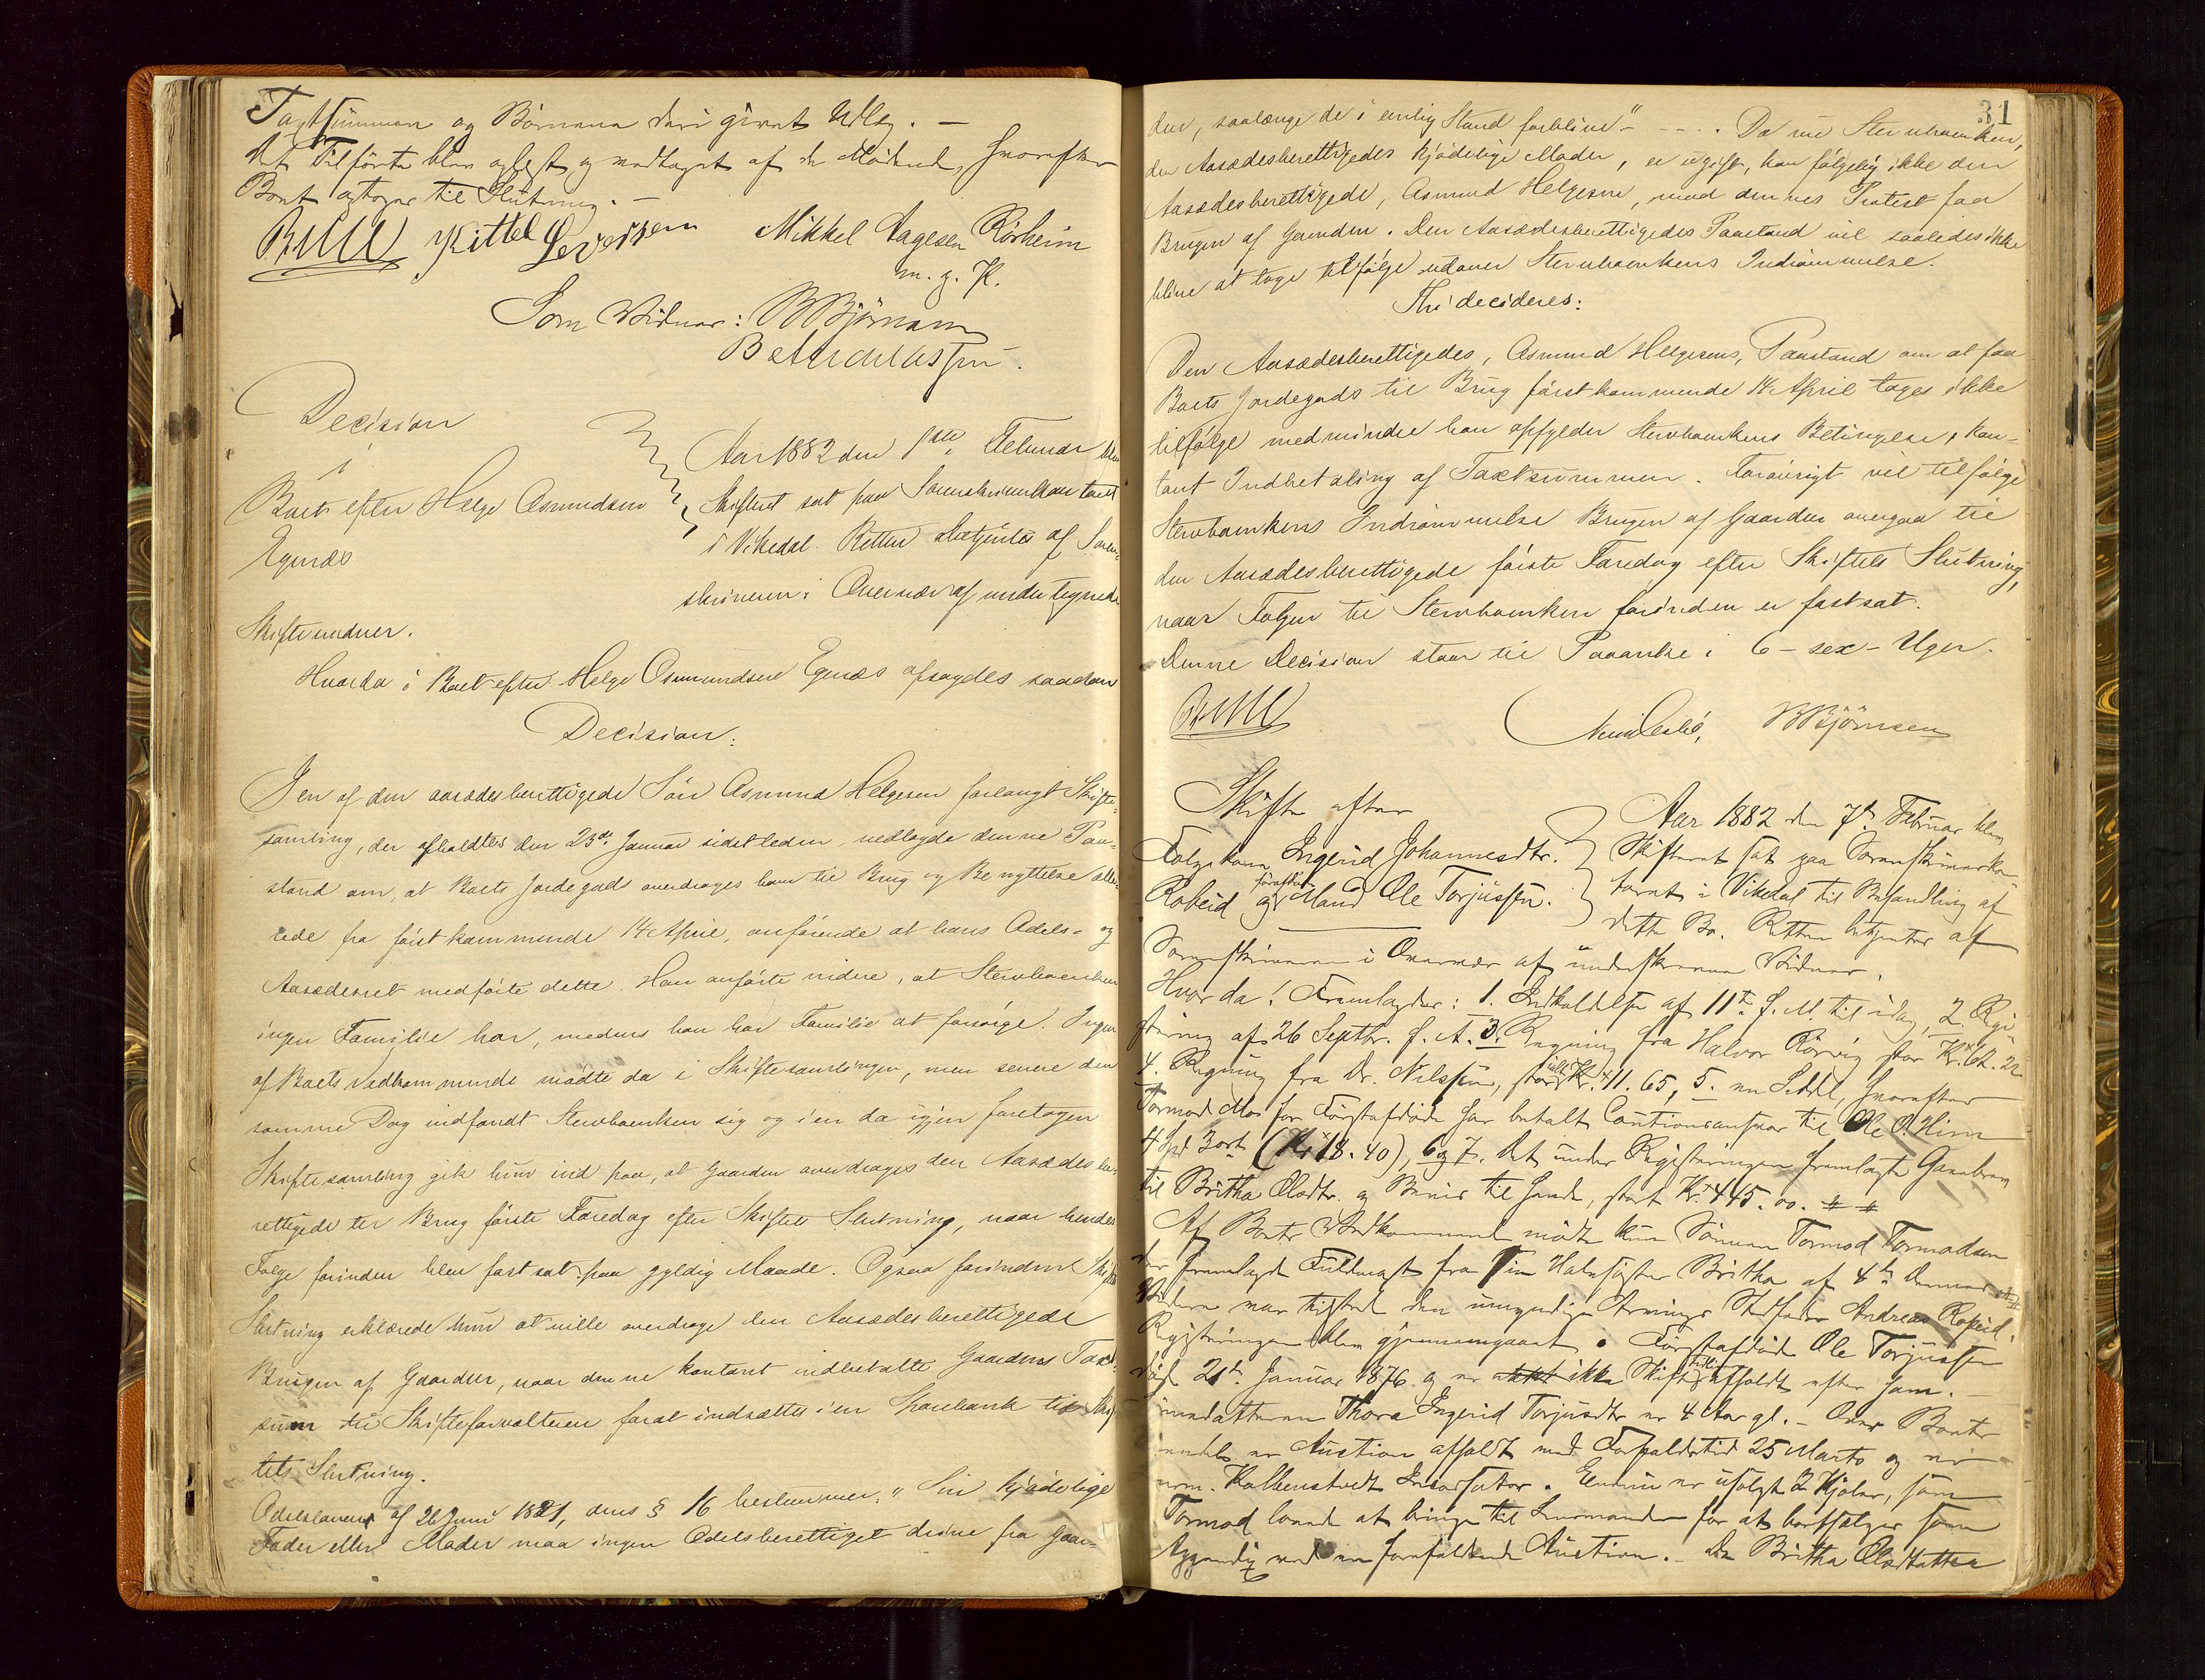 Taxtsummen og Børnene deri givet Udlæg. —
Det Tilførte blev oplæst og vedtaget af de Mødende, hvorefter
Boet optages til Slutning. —
Kittel Severtsen Mikkel Aagesen Rørheim
m. g. K.
Som Vidner: B Bjørnsen
Decision
i
Boet efter Helge Asmundsen
Egenæs
Aar 1882 den 1ste Februar blev
Skifteret sat paa Sorenskriverkontoret
i Vikedal. Retten betjentes af Soren-
skriveren i Overvær af undertegnede
Skiftevidner.
Hvorda i Boet efter Helge Asmundsen Egenæs afsagdes saadan
Decision:
I en af den aasædesberettigede Søn Asmund Helgesen forlangt Skifte-
samling, der afholdtes den 23de Januar sidstleden, nedlagde denne Paa-
stand om, at Boets Jordegods overdrages ham til Brug og Benyttelse alle-
rede fra førstkommende 14 April, anførende at hans Odels- og
Aasædesret medførte dette. Han anførte videre, at Stervboenken
ingen Familie har, medens han har Familie at forsørge. Ingen
af Boets Vedkommende mødte da i Skiftesamlingen, men senere den
samme Dag indfandt Stervboenken sig og i en da igjen foretagen
Skiftesamling gik hun ind paa, at Gaarden overdrages den Aasædesbe-
rettigede til Brug første Faredag efter Skiftets Slutning, naar hendes
Følge forinden blev fastsat paa gyldig Maade. Ogsaa forinden Skiftets
Slutning erklærede hun at ville overdrage den Aasædesberettigede
Brugen af Gaarden, naar denne kontant indbetalte Gaardens Taxt-
sum til Skifteforvalteren forat indsættes i en Sparebank til Skif-
tets Slutning.
Odelsloven af 26 Juni 1821, dens § 16 bestemmer: "Sin kjødelige
Fader eller Moder maa ingen Odelsberettiget drive fra Gaar-
31
den, saalænge de i enlig Stand forblive" - - - -. Da nu Stervboenken,
den Aasædesberettigedes kjødelige Moder, er ugift, kan følgelig ikke den
Aasædesberettigede, Asmund Helgesen, mod dennes Protest faa
Brugen af Gaarden. Den Aasædesberettigedes Paastand vil saaledes ikke
blive at tage tilfølge udover Stervboenkens Indrømmelse.
Thi decideres:
Den Aasædesberettigedes, Asmund Helgesens, Paastand om at faa
Boets Jordegods til Brug førstkommende 14 April tages ikke
tilfølge medmindre han opfylder Stervboenkens Betingelse, kon-
tant Indbetaling af Taxtsummen. Forøvrigt vil tilfølge
Stervboenkens Indrømmelse Brugen af Gaarden overgaa til
den Aasædesberettigede første Faredag efter Skiftets Slutning,
naar Følgen til Stervboenken forinden er fastsat.
Denne Decision staar til Paaanke i 6 - sex - Uger.
B Bjørnsen
Skifte efter
Følgekone Ingerid Johannesdtr.
Røkeid og førafdøde Mand Ole Torjussen.
Aar 1882 den 7de Februar blev
Skifteret sat paa Sorenskriverkon-
toret i Vikedal til Behandling af
dette Bo. Retten betjentes af
Sorenskriveren i Overvær af underskrevne Vidner.
Hvorda: Fremlagdes: 1. Indkaldelse af 11te f. M. til idag, 2. Regi-
strering af 26 Septbr. f. A. 3. Regning fra Halvor Rørvig stor Kr. 62.22
4. Regning fra Dr. Nilssen, stor Kr. 41.65, 5. en Seddel, hvorefter
Tormod Mo for Førstafdøde har betalt Cautionsansvar til Ole O. Him
4 Spd 3 ort (Kr 18.40), 6 og 7. Det under Registreringen fremlagte Gavebrev
til Britha Olsdtr. og Bevis til hende, stort Kr. 445.00.
Af Boets Vedkommende mødte kun Sønnen Tormod Tormodsen
der fremlagde Fuldmagt fra sin Halvsøster Britha af 4de Dennes
Videre var tilstede den umyndige Arvings Stedfader Andreas Røkeid.
Registreringen blev gjennemgaaet. Førstafdøde Ole Torjussen
døde 21de Januar 1876 og er ikke Skifte tidligere afholdt efter ham. —
Sønnedatteren Thora Ingerid Torjusdtr er 4 Aar gl. — Over Boets
er Auction afholdt med Forfaldstid 25 Marts og er
Kolbenstvedt Incassator. Endnu er usolgt 2 Kjoler, som
Tormod lovede at bringe til Lensmanden for at bortsælges som
Myndig ved en forefaldende Auction. — Da Britha Olsdatter